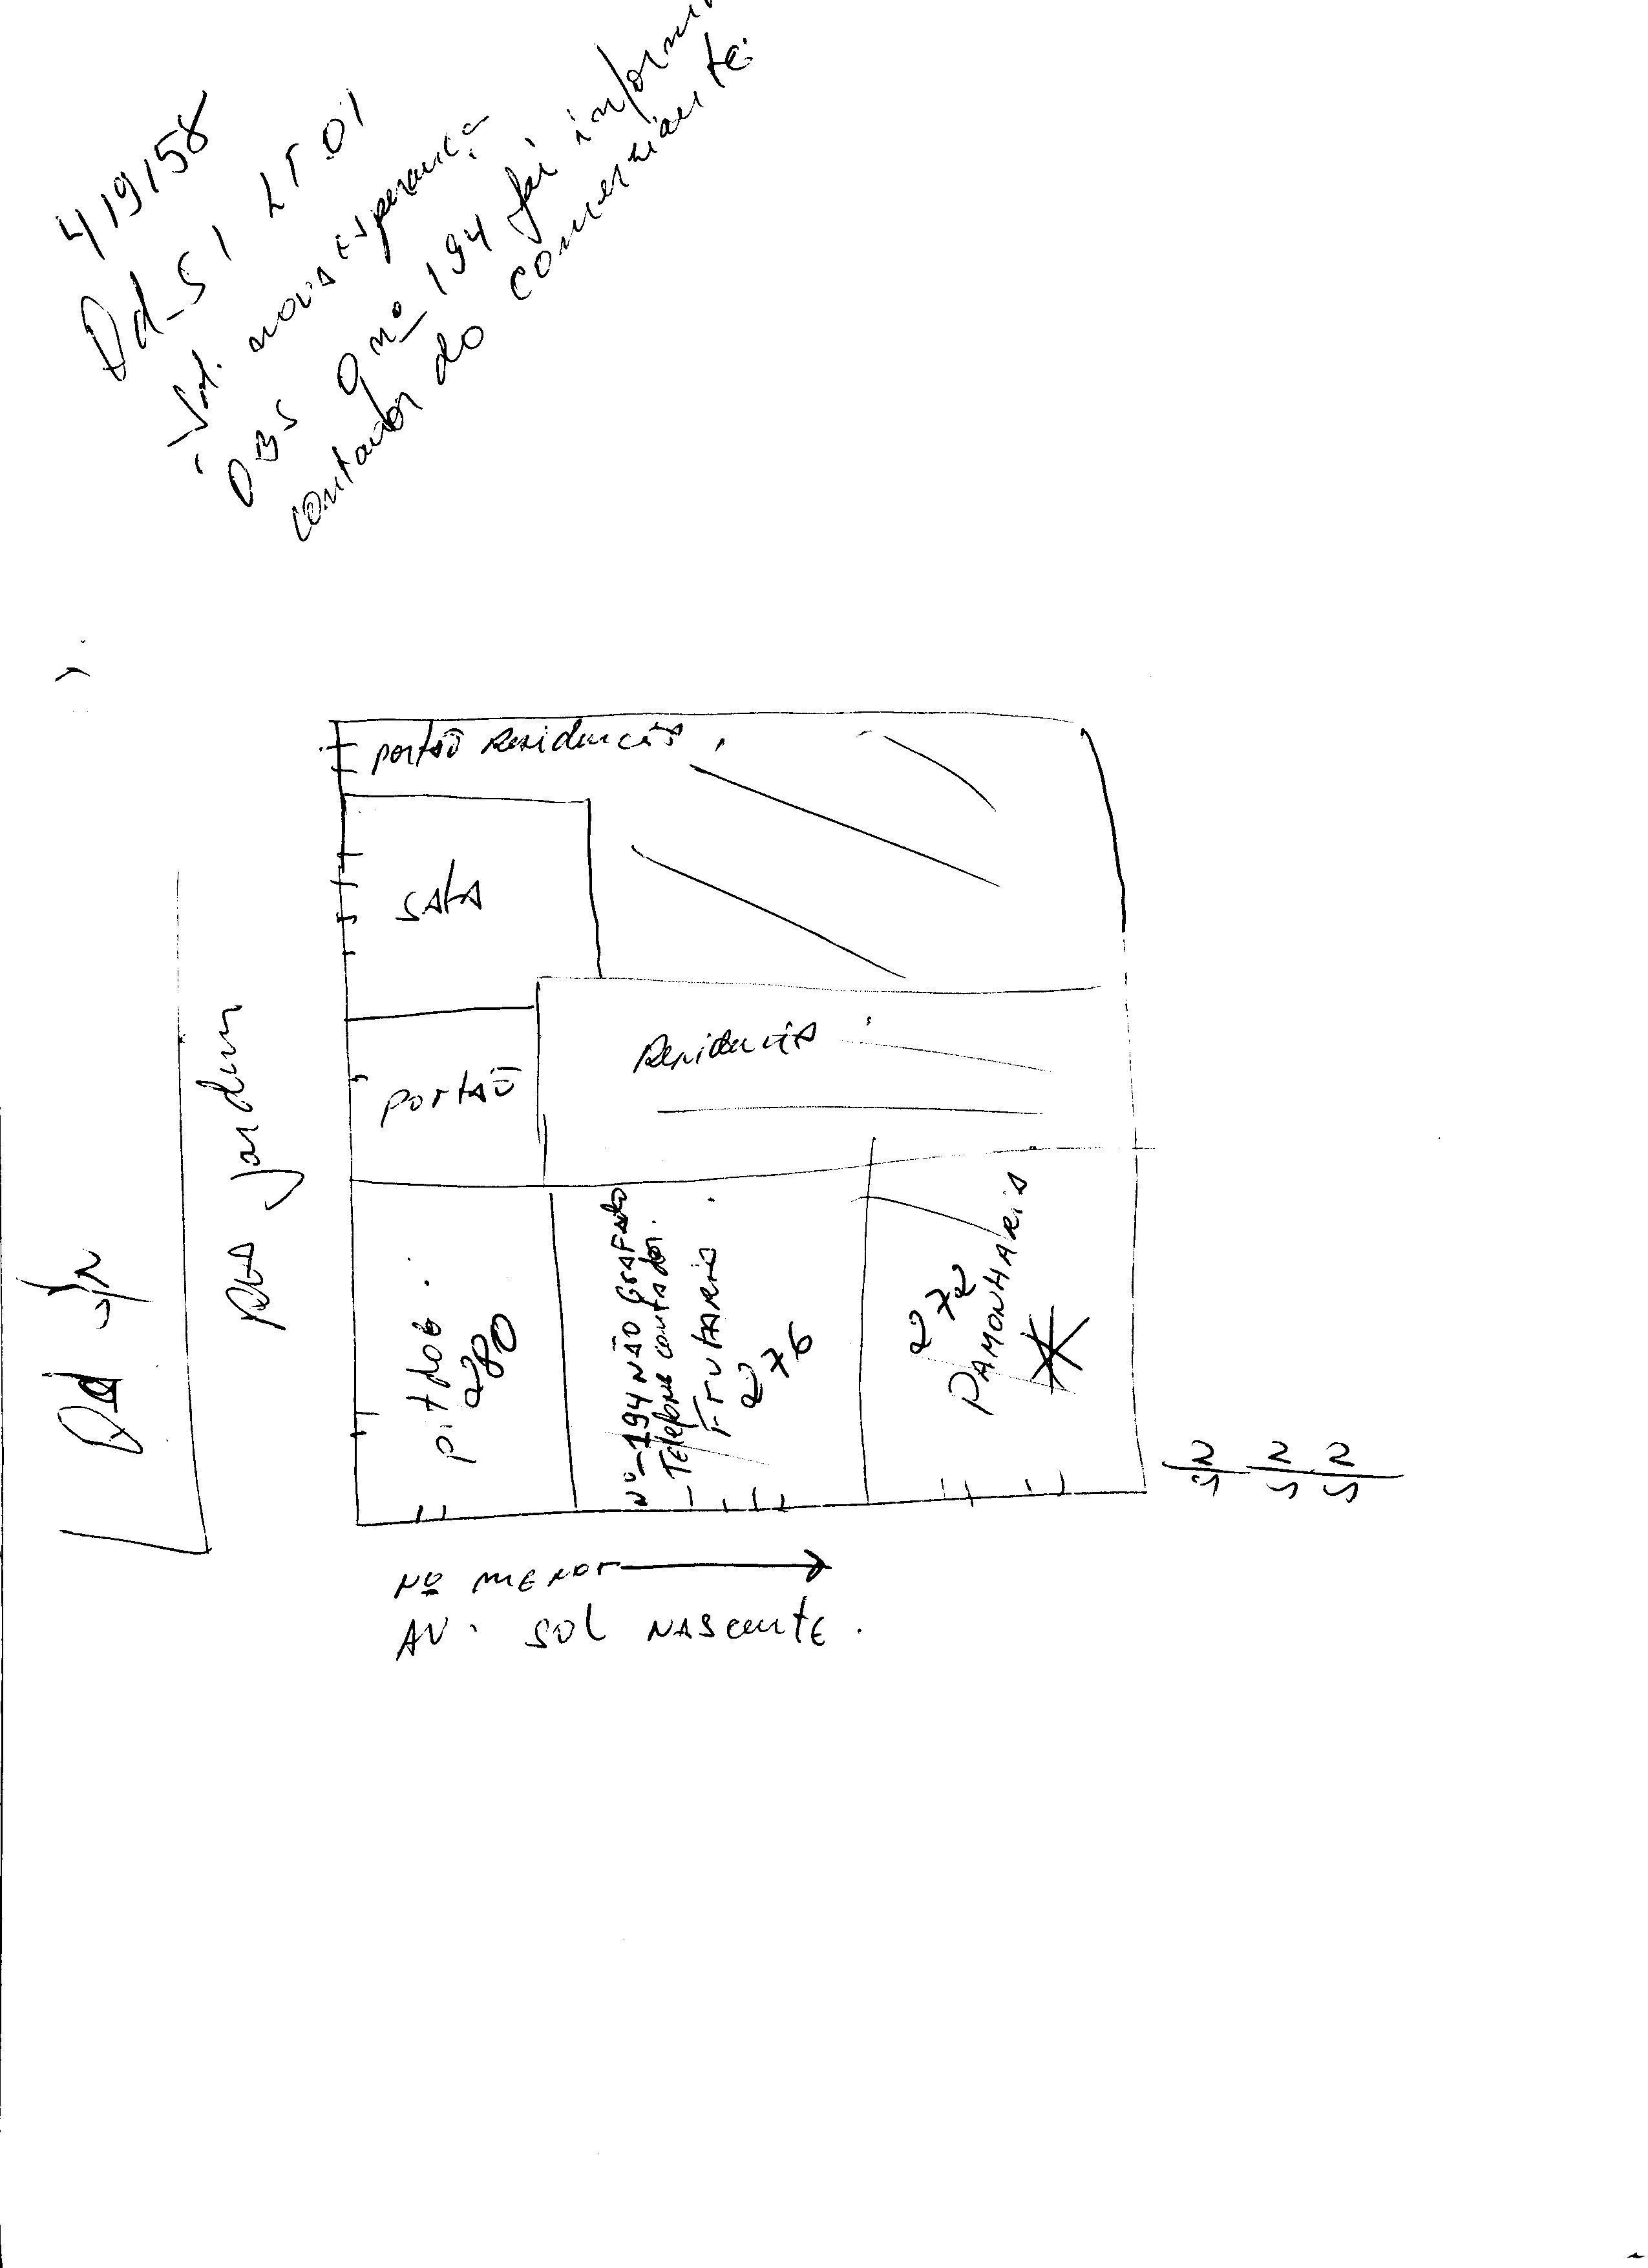 419158
Qd-51 LT 01
nova esperança
OBS O nº 194 foi
contador do comerciante.
portão Residencia.
SALA
Residencia
portão
RUA Jardim
Qd
pit dog.
280
Nº-194 NÃO GRAFADO
- Telefone contador.
FRUTARIA
276
272
PAMONHARIA
Nº MENOR
AV. SOL NASCENTE.